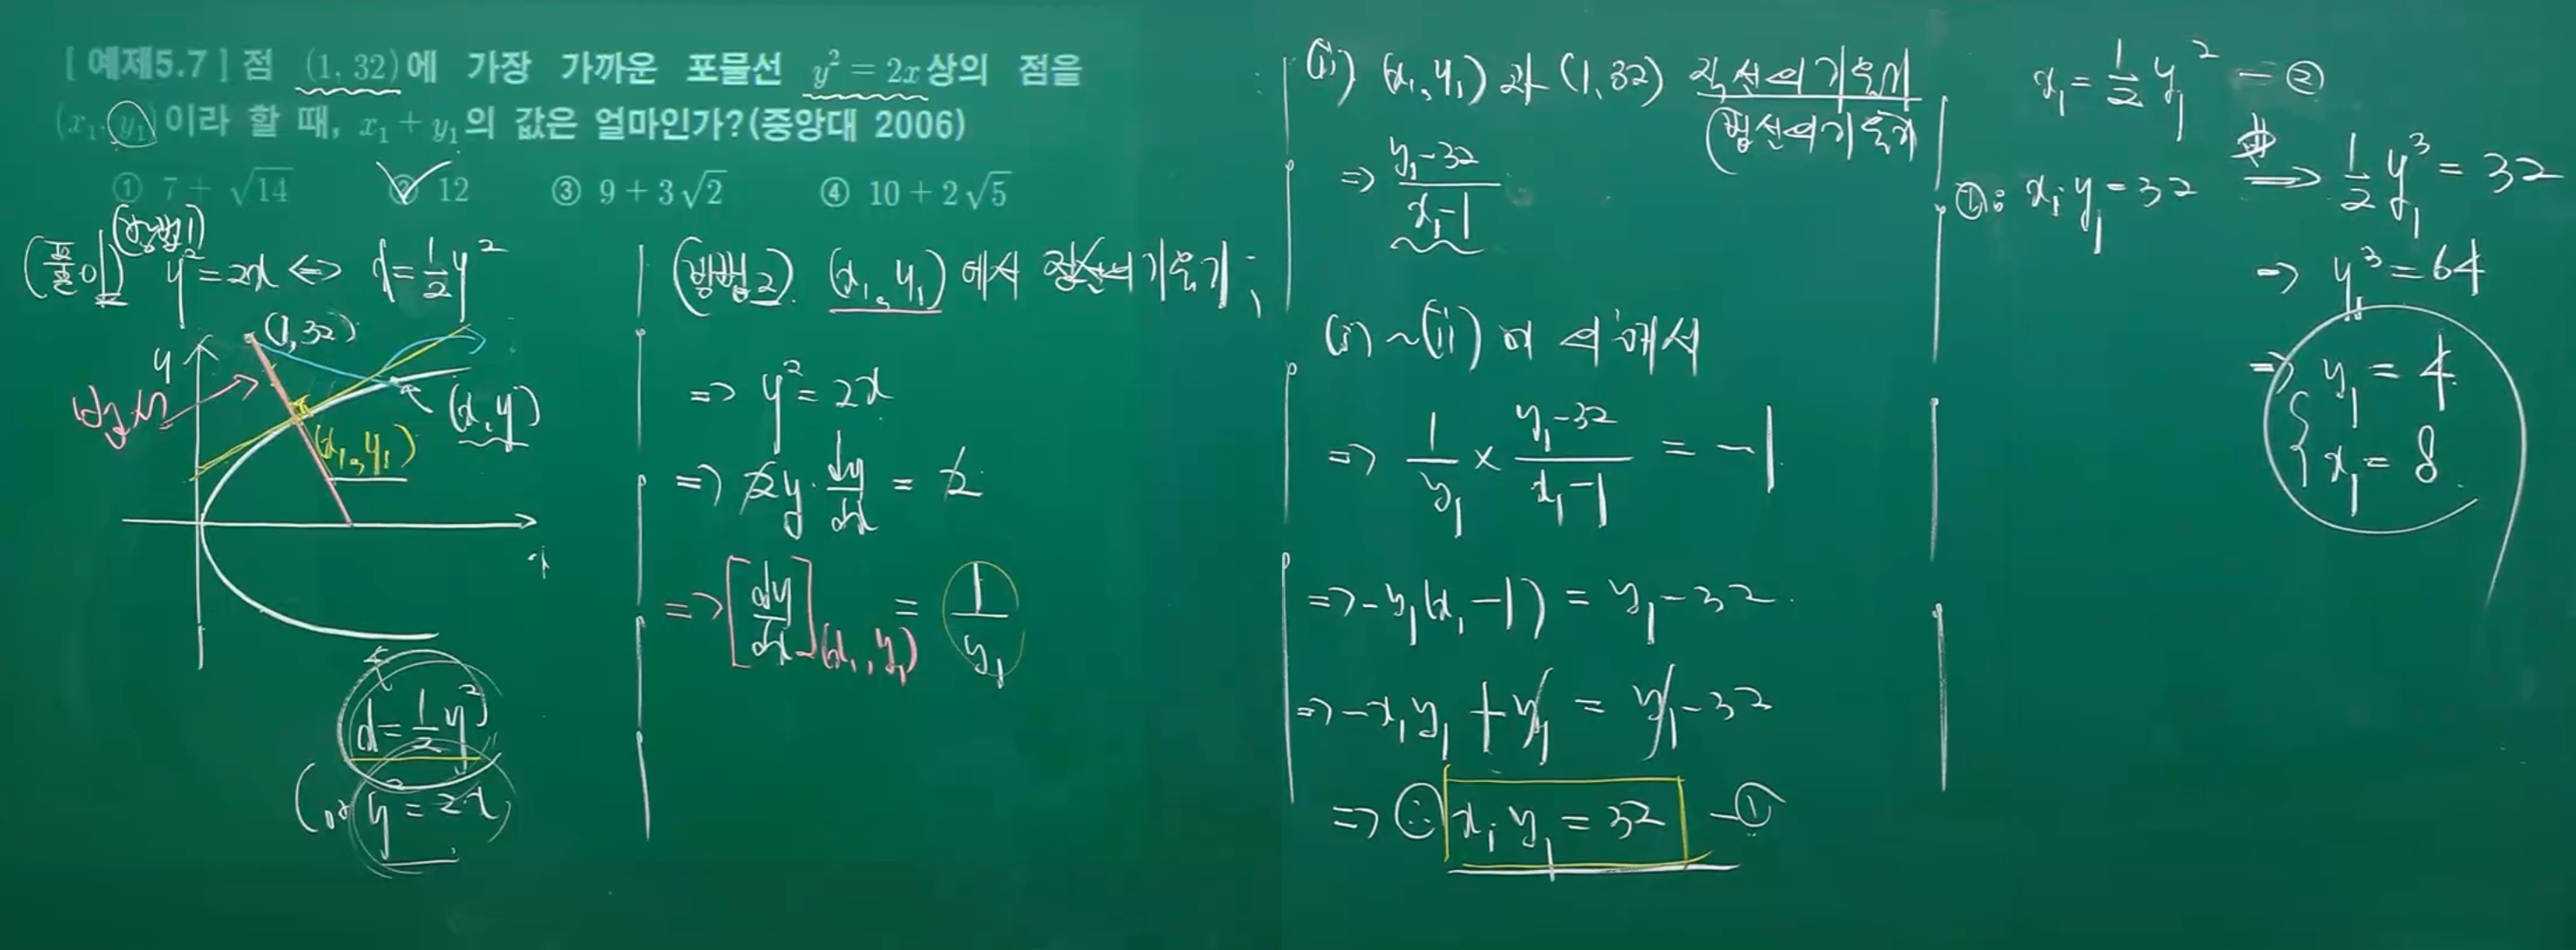 [ 예제5.7 ] 점 (1, 32)에 가장 가까운 포물선 y² = 2x 상의 점을
(x₁, y₁)이라 할 때, x₁ + y₁의 값은 얼마인가?(중앙대 2006)
① 7 + √14 ② 12 ③ 9 + 3√2 ④ 10 + 2√5
(풀이) (방법1)
y² = 2x ⇔ x = 1/2 y²
(1, 32)
y
법선
(x, y)
(x₁, y₁)
x
x = 1/2 y²
(or y² = 2x)
(방법2) (x₁, y₁) 에서 접선의 기울기 ;
⇒ y² = 2x
⇒ 2y · dy/dx = 2
⇒ [dy/dx](x₁, y₁) = 1/y₁
(ii) (x₁, y₁) 과 (1, 32) 직선의 기울기
(법선의 기울기)
⇒ y₁-32 / x₁-1
(i) ~ (ii) 에 의해서
⇒ 1/y₁ × y₁-32 / x₁-1 = -1
⇒ -y₁(x₁-1) = y₁-32
⇒ -x₁y₁ + y₁ = y₁-32
⇒ ∴ x₁y₁ = 32 - ①
x₁ = 1/2 y₁² - ②
①: x₁y₁ = 32 ⇒ 1/2 y₁³ = 32
⇒ y₁³ = 64
⇒ y₁ = 4
x₁ = 8